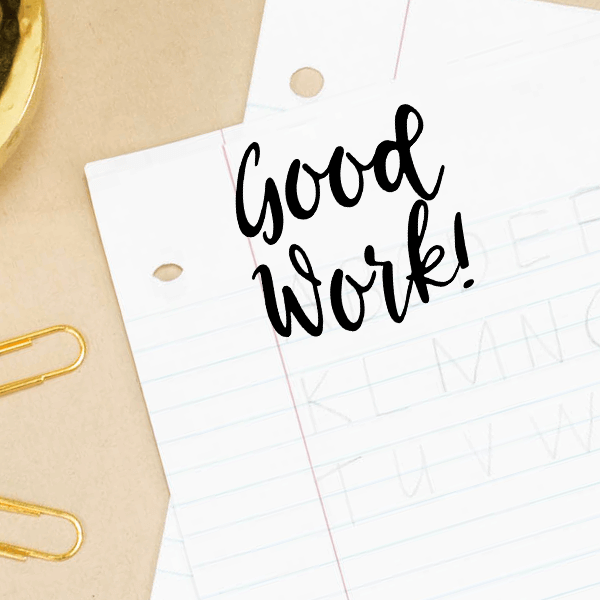 Good
Work!
E F
K L M N
T U V W